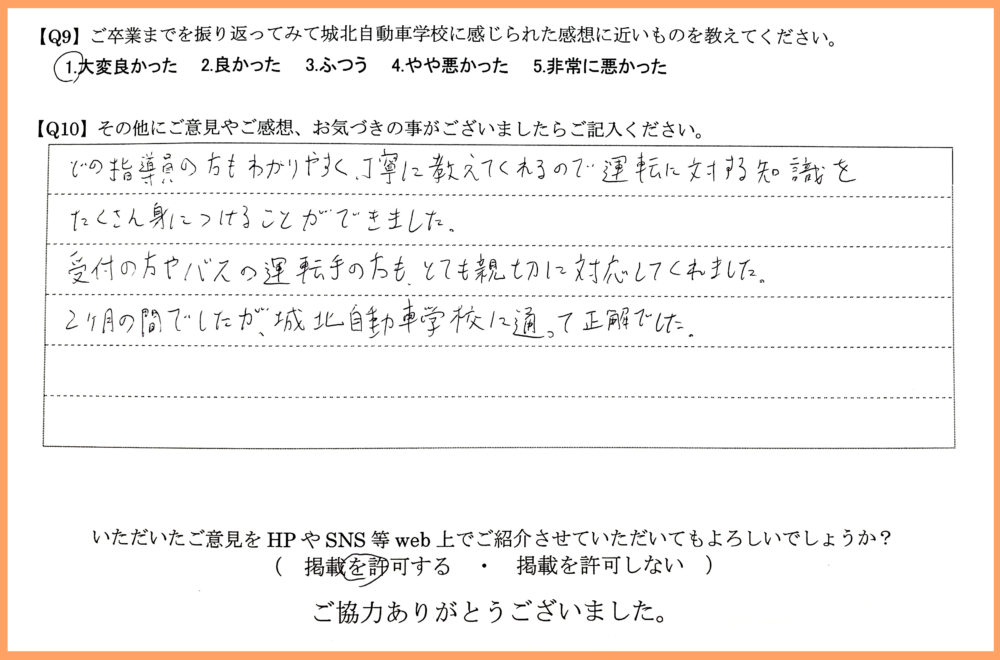 【Q9】ご卒業までを振り返ってみて城北自動車学校に感じられた感想に近いものを教えてください。
1.大変良かった 2.良かった 3.ふつう 4.やや悪かった 5.非常に悪かった
【Q10】その他にご意見やご感想、お気づきの事がございましたらご記入ください。
どの指導員の方もわかりやすく、丁寧に教えてくれるので運転に対する知識を
たくさん身につけることができました。
受付の方やバスの運転手の方も、とても親切に対応してくれました。
2ヶ月の間でしたが、城北自動車学校に通って正解でした。
いただいたご意見を HP や SNS 等 web 上でご紹介させていただいてもよろしいでしょうか？
（ 掲載を許可する ・ 掲載を許可しない ）
ご協力ありがとうございました。